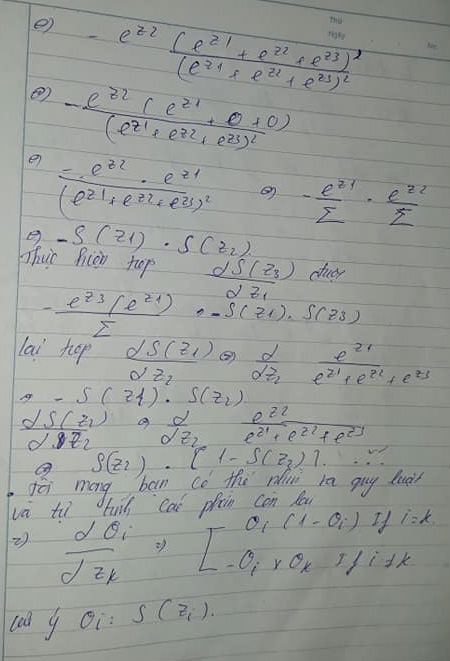 Thứ
Ngày No.
⇔ - e^z2 (e^z1 + e^z2 + e^z3)' / (e^z1 + e^z2 + e^z3)²
⇔ - e^z2 (e^z1 + 0 + 0) / (e^z1 + e^z2 + e^z3)²
⇔ - e^z2 · e^z1 / (e^z1 + e^z2 + e^z3)² ⇔ - e^z1 / Σ · e^z2 / Σ
⇔ - S(z1) · S(z2)
Thực hiện tiếp dS(z3) / dz1 được
- e^z3 (e^z1) / Σ = -S(z1) · S(z3)
lại tiếp dS(z1) / dz2 ⇔ d / dz2 e^z1 / e^z1 + e^z2 + e^z3
⇔ - S(z1) · S(z2)
dS(z2) / dz2 ⇔ d / dz2 e^z2 / e^z1 + e^z2 + e^z3
⇔ S(z2) · [1 - S(z2)]. ...
Tôi mong bạn có thể nhìn ra quy luật
và tự tính các phần còn lại
=) dOi / dzk =) [ Oi (1 - Oi) If i = k.
-Oi x Ok If i ≠ k
lưu ý Oi = S(zi).